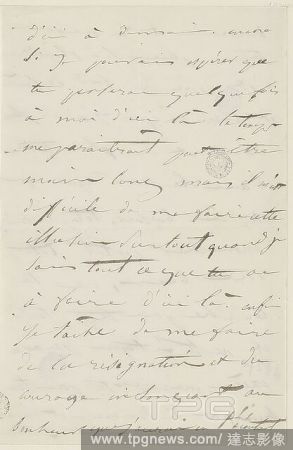 d'ici à demain. encore
Si je pouvais espérer que
tu penseras quelque fois
à moi d'ici là le temps
me paraitrait peut être
moin long mais il m'est
difficile de me faire cette
illusion surtout quand je
sais tout ce que tu as
à faire d'ici là. enfin
je tâche de me faire
de la résignation et du
courage en songeant au
bonheur que j'aurai
TPG
www.tpgnews.com / 達志影像